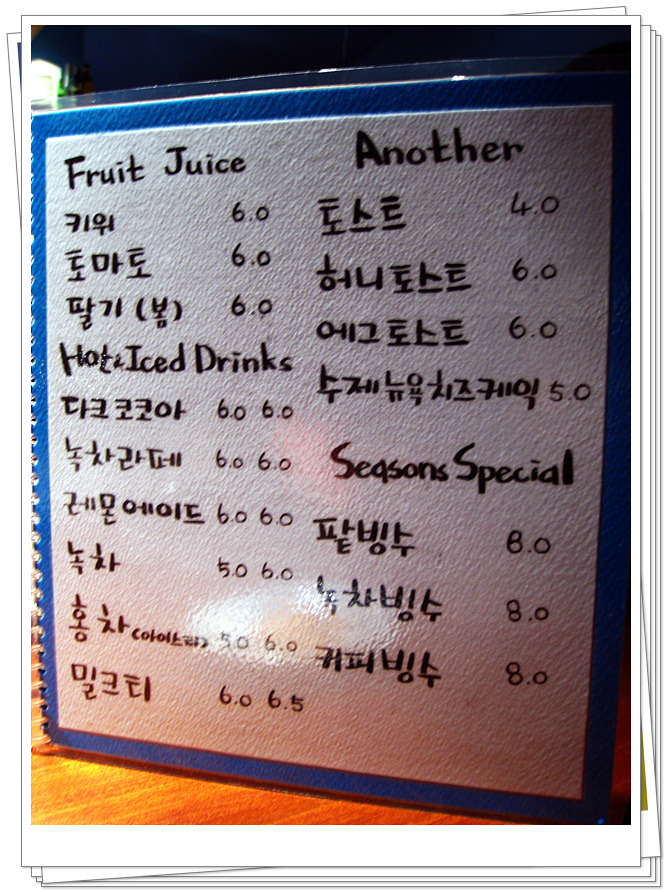 Fruit Juice
키위 6.0
토마토 6.0
딸기 (봄) 6.0
Hot&Iced Drinks
다크코코아 6.0 6.0
녹차라떼 6.0 6.0
레몬에이드 6.0 6.0
녹차 5.0 6.0
홍차(아이스티) 5.0 6.0
밀크티 6.0 6.5
Another
토스트 4.0
허니토스트 6.0
에그토스트 6.0
수제뉴욕치즈케익 5.0
Seasons Special
팥빙수 8.0
녹차빙수 8.0
커피빙수 8.0